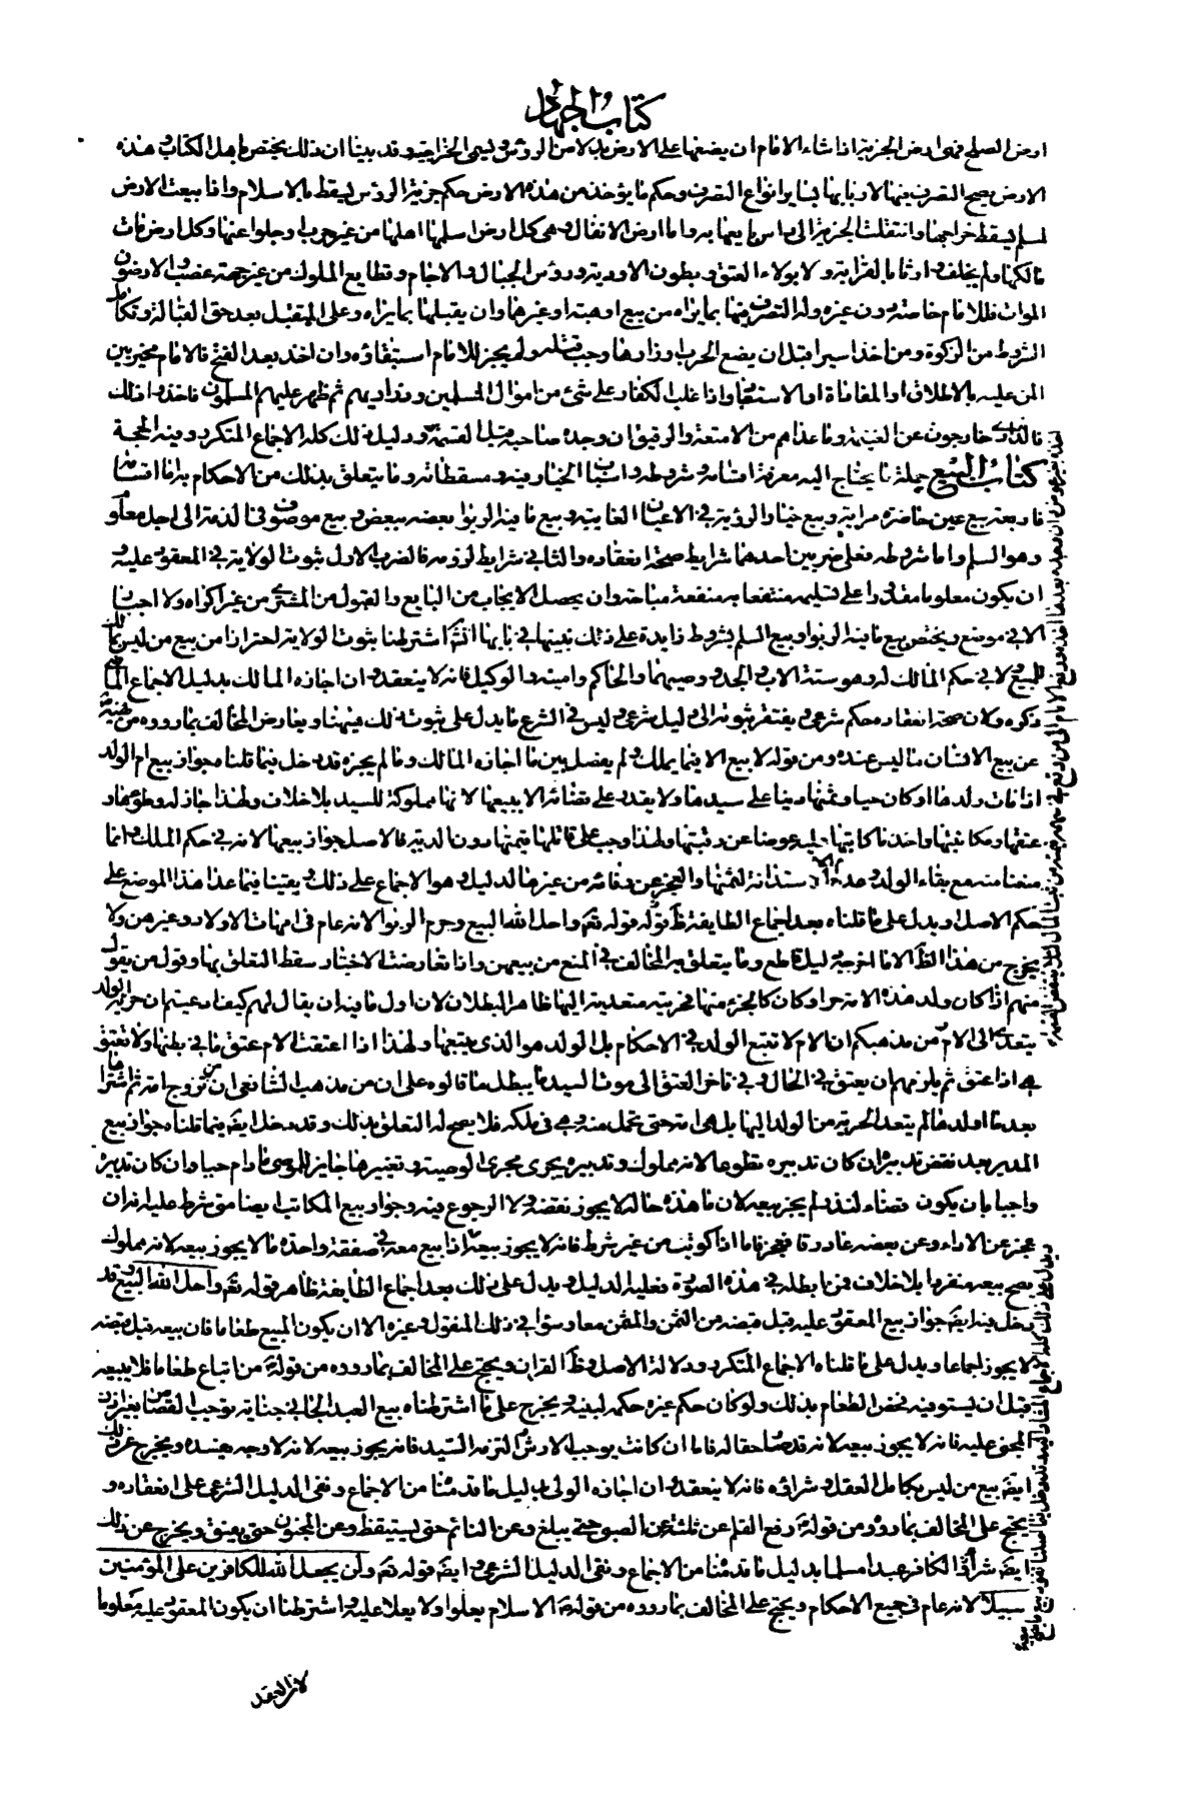 كتاب الجهاد
ارض الصلح فهى ارض الجزية اذا شاء الامام ان يضعها على الارض بدلا من الرؤس وتسمى الخراجية وقد بينا ان ذلك يختص باهل الكتاب وهذه
الارض يصح التصرف فيها لاربابها بساير انواع التصرف وحكم ما يؤخذ من هذه الارض حكم جزية الرؤس يسقط بالاسلام واذا بيعت الارض
لمسلم سقط خراجها وانتقلت الجزية الى راس بايعها به واما ارض الانفال وهى كل ارض اسلمها اهلها من غير حرب او جلوا عنها وكل ارض مات
مالكها ولم يخلف وارثا بالقرابة ولا بولاء العتق وبطون الاودية ورؤس الجبال والاجام وقطايع الملوك من غير جهة غصب والارضون
الموات فللامام خاصة دون غيره وله التصرف فيها بما يراه من بيع او هبة او غيرهما وان يقبلها بما يراه وعلى المتقبل بعد حق القبالة وتكامل
الشروط من الزكوة ومن اخذ اسيرا قبل ان يضع الحرب اوزارها وجب قتله ولم يجز للامام استبقاؤه وان اخذ بعد الفتح فالامام مخير بين
المن عليه بالاطلاق او المفاداة او الاستعباد واذا غلب الكفار على شئ من اموال المسلمين وذراريهم ثم ظهر عليهم المسلمون فاخذوا ذلك
فالذراري خارجون عن الغنيمة وما عداهم من الامتعة والرقيق ان وجده صاحبه قبل القسمة ودليل ذلك كله الاجماع المتكرر وفيه الحجة
كتاب البيع جملة ما يحتاج اليه معرفة اقسامه وشروطه واسباب الخيار فيه ومسقطاته وما يتعلق بذلك من الاحكام به اما اقسامه
فاربعة بيع عين حاضرة مرابية وبيع خيار الرؤية فى الاعيان الغايبة وبيع ما فيه الربوا بعضه ببعض وبيع موصوف فى الذمة الى اجل معلوم
وهو السلم واما شروطه فعلى ضربين احدهما شرايط صحة انعقاده والثانى شرايط لزومه فالضرب الاول ثبوت الولاية فى المعقود عليه
ان يكون معلوما مقدورا على تسليمه منتفعا به منفعة مباحة وان يحصل الايجاب من البايع والقبول من المشترى من غير اكراه ولا اجبار
الا فى موضع ويختص بيع ما فيه الربوا وبيع السلم بشروط زايدة على ذلك نبينها فى بابها اشترطنا ثبوت الولاية احترازا من بيع من ليس بمالك
للمبيع ولا فى حكم المالك له وهو ستة الاب والجد ووصيهما والحاكم وامينه والوكيل فانه لا ينعقد وان اجازه المالك بدليل الاجماع الماضى
ذكره ولان صحة انعقاده حكم شرعى يفتقر ثبوته الى دليل شرعى وليس فى الشرع ما يدل على ثبوت ذلك هيهنا ويعارض المخالف بما رووه من نهيه
عن بيع الانسان ما ليس عنده ومن قوله لا بيع الا فيما يملك ولم يفصل بين ما اجازه المالك وما لم يجزه وقد دخل فيما قلناه جواز بيع ام الولد
اذا مات ولدها او كان حيا وثمنها دينا على سيدها ولا يقدر على قضائه الا ببيعها لانها مملوكة للسيد بلا خلاف ولهذا جاز له وطؤها و
عتقها ومكاتبتها واخذ ما كاتبها عليه عوضا عن رقبتها ولهذا وجب على قاتلها قيمتها دون الدية فالاصل جواز بيعها لانه فى حكم الملك وانما
منعنا منه مع بقاء الولد وعدم الاستدانة لثمنها والعجز عن وفائه من غيرها لدليل وهو الاجماع على ذلك وبقينا فيما عدا هذا الموضع على
حكم الاصل ويدل على ما قلناه بعد اجماع الطايفة ظ قوله تعـ واحل الله البيع وحرم الربوا لانه عام فى امهات الاولاد وغيرهن ولا
يخرج من هذا الظ الا ما اخرجه دليل قاطع وما يتعلق به المخالف فى المنع من بيعهن واذا تعارضت الاخبار سقط التعلق بها وقول من يقول
منهم اذا كان ولد هذه الامة حرا وكان كالجزء منها فحريته متعدية اليها ظاهر البطلان لان اول ما فيه ان يقال لهم كيف ادعيتم ان حرية الولد
يتعدى الى الام ومن مذهبكم ان الام لا تتبع الولد فى الاحكام بل الولد هو الذى يتبعها ولهذا اذا اعتقت الام عتق ما فى بطنها ولا تعتق
هى اذا عتق ثم يلزمهم ان يعتق فى الحال وفى تاخر العتق الى موت السيد ما يبطل ما قالوه على ان من مذهب الشافعى ان من تزوج امة ثم اشتراها
بعد ما اولدها لم يتعد الحرية من الولد اليها بل هى امة حتى تحمل منه وهى فى ملكه فلا يصح له التعلق بذلك وقد دخل ايضـ فيما قلناه جواز بيع
المدبر بعد نقض تدبيره ان كان تدبيره تطوعا لانه مملوك وتدبيره يجرى مجرى الوصية وتغييرها جايز للموصى ما دام حيا وان كان تدبيره
واجبا بان يكون قضاء لنذر لم يجز بيعه لان ما هذه حاله لا يجوز نقضه ولا الرجوع فيه وجواز بيع المكاتب ايضا متى شرط عليه انه ان
عجز عن الاداء وعن بعضه عاد رقا فعجز فاما اذا كوتب من غير شرط فانه لا يجوز بيعه اذا بيع معه فى صفقة واحدة ما لا يجوز بيعه لانه مملوك
يصح بيعه منفردا بلا خلاف فمن ابطله فى هذه الصورة فعليه الدليل ويدل على ذلك بعد اجماع الطايفة ظاهر قوله تعـ واحل الله البيع وقد
دخل فيه ايضـ جواز بيع المعقود عليه قبل قبضه من الثمن والمثمن معا وسواء فى ذلك المنقول وغيره الا ان يكون المبيع طعاما فان بيعه قبل قبضه
لا يجوز اجماعا ويدل على ما قلناه الاجماع المتكرر ودلالة الاصل وظ القران ويحتج على المخالف بما رووه من قوله من ابتاع طعاما فلا يبيعه
قبل ان يستوفيه فخص الطعام بذلك ولو كان حكم غيره حكمه لبينه ويخرج على ما اشترطناه بيع العبد الجانى جناية توجب القصاص بغير اذن
المجنى عليه فانه لا يجوز بيعه لانه قد صار حقا له فاما ان كانت يوجب الارش التزمه السيد فانه يجوز بيعه لانه لا وجه يفسده ويخرج عن ذلك
ايضـ بيع من ليس بكامل العقل وشراؤه فانه لا ينعقد وان اجازه الولى بدليل ما قدمنا من الاجماع ونفى الدليل الشرعى على انعقاده و
يحتج على المخالف بما رووه من قوله رفع القلم عن ثلثة عن الصبى حتى يبلغ وعن النائم حتى يستيقظ وعن المجنون حتى يفيق ويخرج عن ذلك
ايضـ شراء الكافر عبدا مسلما بدليل ما قدمنا من الاجماع ونفى الدليل الشرعى وايضـ قوله تعـ ولن يجعل الله للكافرين على المؤمنين
سبيلا لانه عام فى جميع الاحكام ويحتج على المخالف بما رووه من قوله الاسلام يعلوا ولا يعلا عليه واشترطنا ان يكون المعقود عليه معلوما
لان العقد